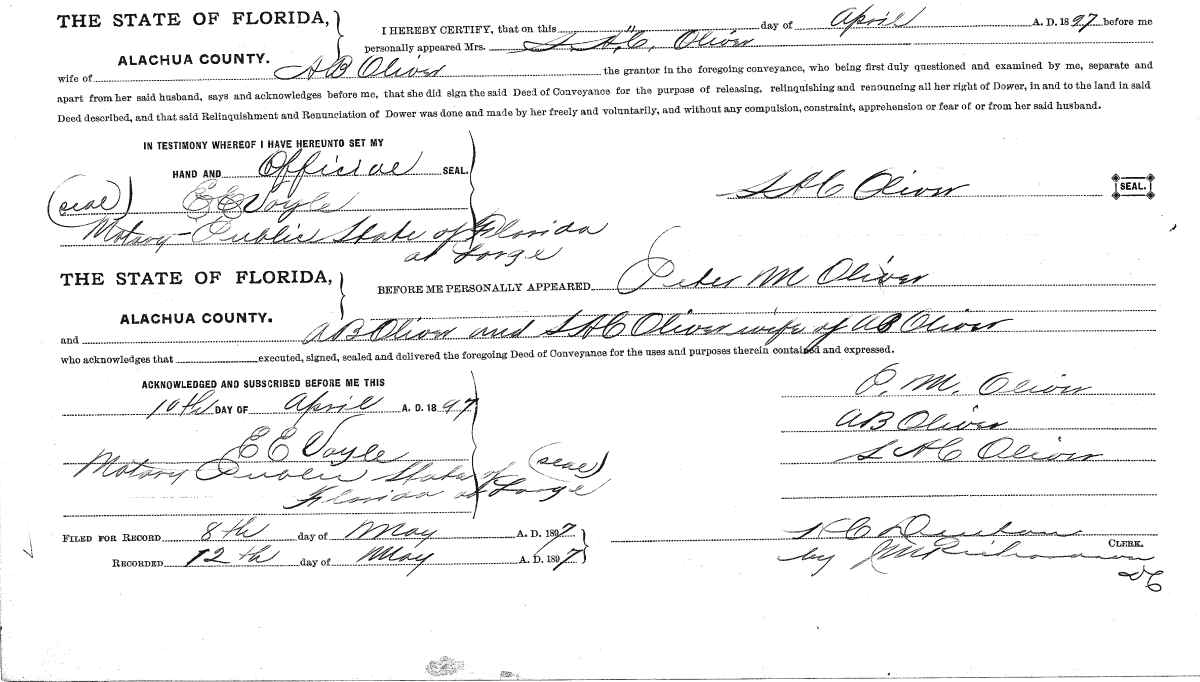 THE STATE OF FLORIDA,
ALACHUA COUNTY.
I HEREBY CERTIFY, that on this " day of April A. D. 1897 before me
personally appeared Mrs. S A C. Oliver
wife of A B Oliver the grantor in the foregoing conveyance, who being first duly questioned and examined by me, separate and
apart from her said husband, says and acknowledges before me, that she did sign the said Deed of Conveyance for the purpose of releasing, relinquishing and renouncing all her right of Dower, in and to the land in said
Deed described, and that said Relinquishment and Renunciation of Dower was done and made by her freely and voluntarily, and without any compulsion, constraint, apprehension or fear of or from her said husband.
IN TESTIMONY WHEREOF I HAVE HEREUNTO SET MY
HAND AND Official SEAL.
(seal) E E Voyle
S A C Oliver SEAL.
Notary Public State of Florida
at Large
THE STATE OF FLORIDA,
ALACHUA COUNTY.
BEFORE ME PERSONALLY APPEARED Peter M Oliver
and A B Oliver and S A C Oliver wife of A B Oliver
who acknowledges that executed, signed, sealed and delivered the foregoing Deed of Conveyance for the uses and purposes therein contained and expressed.
ACKNOWLEDGED AND SUBSCRIBED BEFORE ME THIS
10th DAY OF April A. D. 1897
P. M. Oliver
A B Oliver
S A C Oliver
E E Voyle
Notary Public State of (seal)
Florida at Large
FILED FOR RECORD 8th day of May A. D. 1897
RECORDED 12th day of May A. D. 1897
H C Denton
CLERK.
by J M Richardson
DC